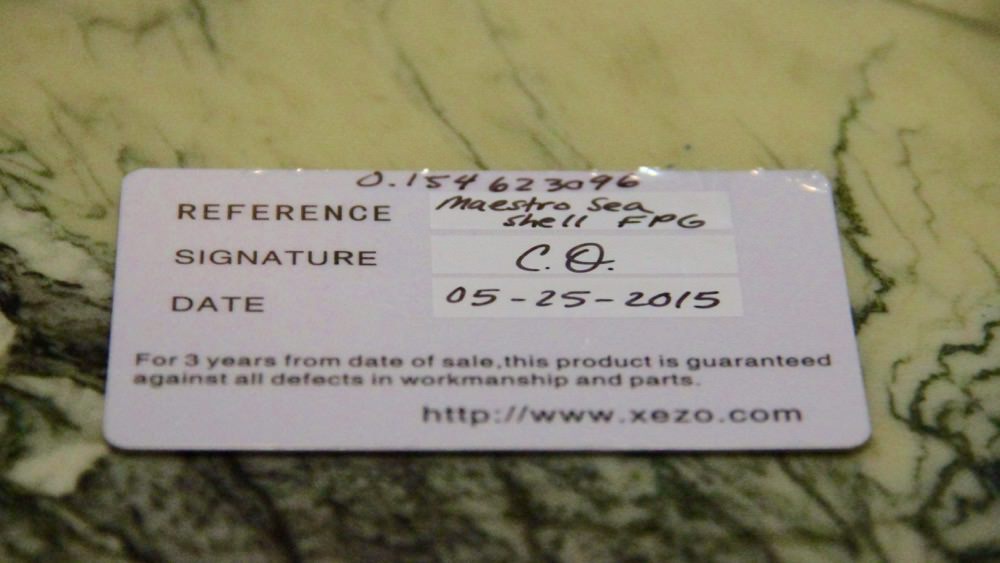 0.154623096
REFERENCE Maestro Sea
shell FPG
SIGNATURE C.O.
DATE 05-25-2015
For 3 years from date of sale,this product is guaranteed
against all defects in workmanship and parts.
http://www.xezo.com